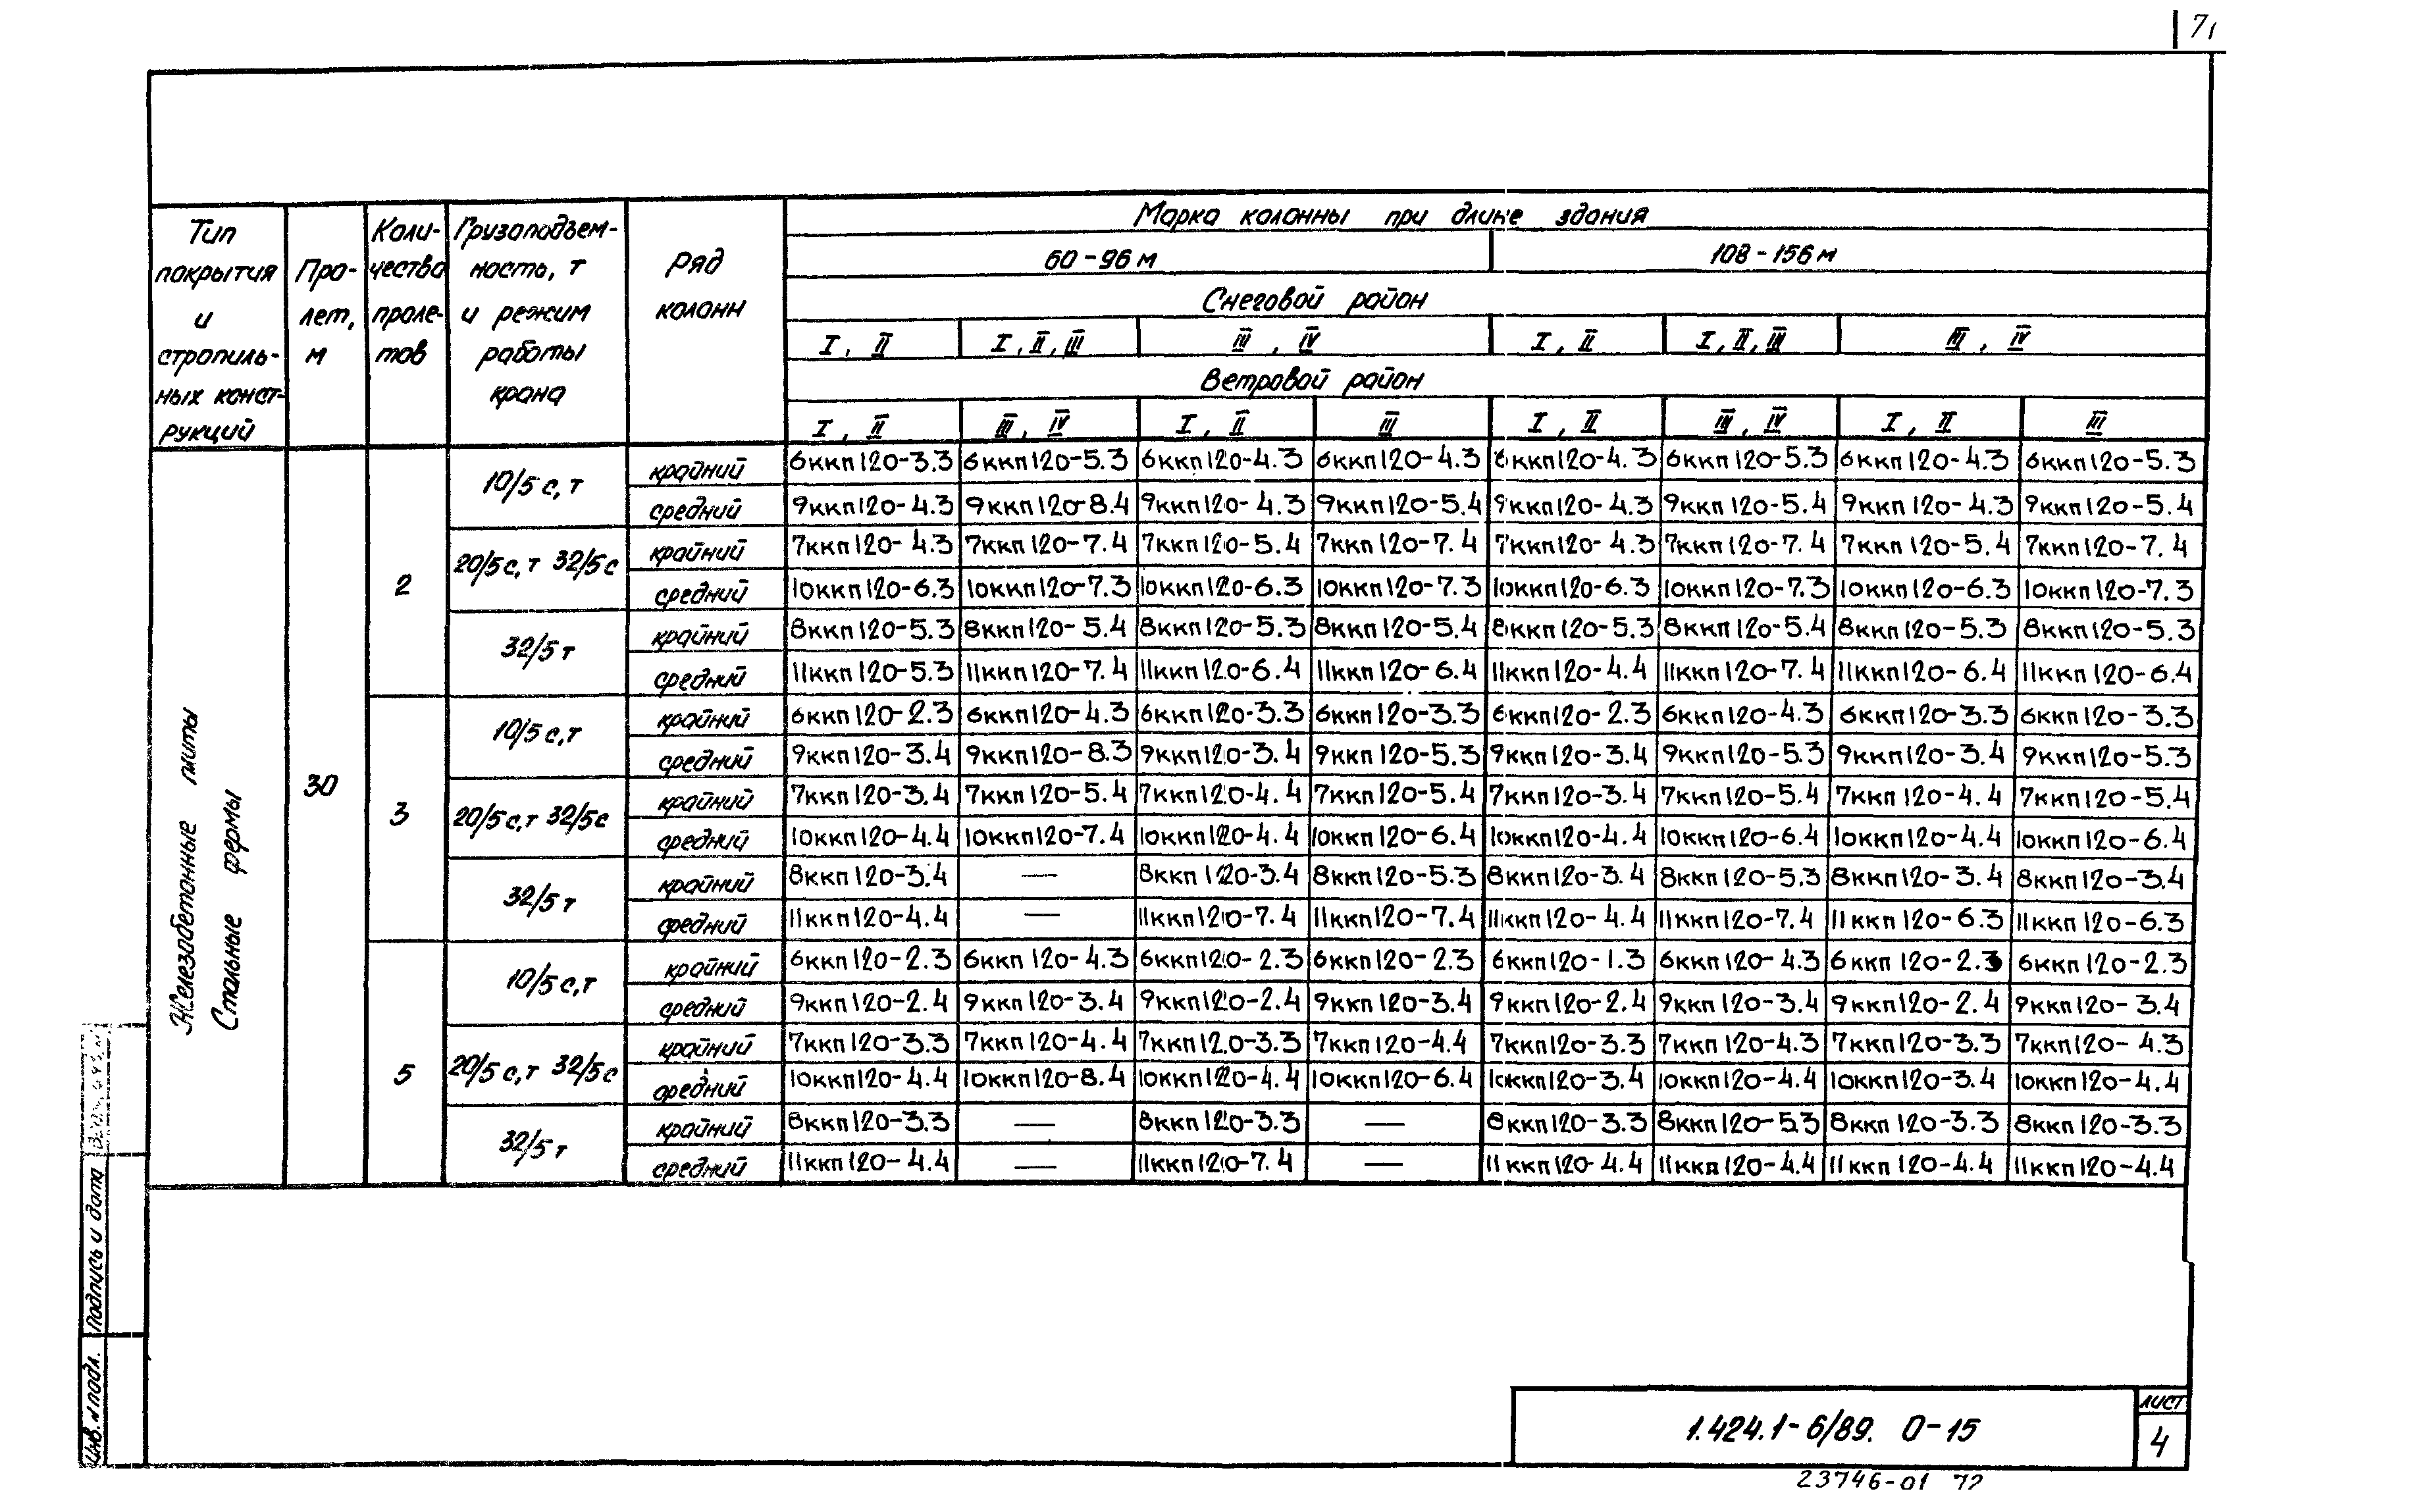 71
Тип покрытия и стропиль- ных конст- рукций
Про- лет, м
Коли- чество проле- тов
Грузоподъем- ность, т и режим работы крана
Ряд колонн
Марка колонны при длине здания
60-96 м 108-156 м
Снеговой район
I, II I, II, III III, IV I, II I, II, III III, IV
Ветровой район
I, II III, IV I, II III I, II III, IV I, II III
Железобетонные плиты
Стальные фермы
30
2
10/5 с,т
крайний 6ККП120-3.3 6ККП120-5.3 6ККП120-4.3 6ККП120-4.3 6ККП120-4.3 6ККП120-5.3 6ККП120-4.3 6ККП120-5.3
средний 9ККП120-4.3 9ККП120-8.4 9ККП120-4.3 9ККП120-5.4 9ККП120-4.3 9ККП120-5.4 9ККП120-4.3 9ККП120-5.4
20/5 с,т 32/5 с
крайний 7ККП120-4.3 7ККП120-7.4 7ККП120-5.4 7ККП120-7.4 7ККП120-4.3 7ККП120-7.4 7ККП120-5.4 7ККП120-7.4
средний 10ККП120-6.3 10ККП120-7.3 10ККП120-6.3 10ККП120-7.3 10ККП120-6.3 10ККП120-7.3 10ККП120-6.3 10ККП120-7.3
32/5 т
крайний 8ККП120-5.3 8ККП120-5.4 8ККП120-5.3 8ККП120-5.4 8ККП120-5.3 8ККП120-5.4 8ККП120-5.3 8ККП120-5.3
средний 11ККП120-5.3 11ККП120-7.4 11ККП120-6.4 11ККП120-6.4 11ККП120-4.4 11ККП120-7.4 11ККП120-6.4 11ККП120-6.4
3
10/5 с,т
крайний 6ККП120-2.3 6ККП120-4.3 6ККП120-3.3 6ККП120-3.3 6ККП120-2.3 6ККП120-4.3 6ККП120-3.3 6ККП120-3.3
средний 9ККП120-3.4 9ККП120-8.3 9ККП120-3.4 9ККП120-5.3 9ККП120-3.4 9ККП120-5.3 9ККП120-3.4 9ККП120-5.3
20/5 с,т 32/5 с
крайний 7ККП120-3.4 7ККП120-5.4 7ККП120-4.4 7ККП120-5.4 7ККП120-3.4 7ККП120-5.4 7ККП120-4.4 7ККП120-5.4
средний 10ККП120-4.4 10ККП120-7.4 10ККП120-4.4 10ККП120-6.4 10ККП120-4.4 10ККП120-6.4 10ККП120-4.4 10ККП120-6.4
32/5 т
крайний 8ККП120-3.4 — 8ККП120-3.4 8ККП120-5.3 8ККП120-3.4 8ККП120-5.3 8ККП120-3.4 8ККП120-3.4
средний 11ККП120-4.4 — 11ККП120-7.4 11ККП120-7.4 11ККП120-4.4 11ККП120-7.4 11ККП120-6.3 11ККП120-6.3
5
10/5 с,т
крайний 6ККП120-2.3 6ККП120-4.3 6ККП120-2.3 6ККП120-2.3 6ККП120-1.3 6ККП120-4.3 6ККП120-2.3 6ККП120-2.3
средний 9ККП120-2.4 9ККП120-3.4 9ККП120-2.4 9ККП120-3.4 9ККП120-2.4 9ККП120-3.4 9ККП120-2.4 9ККП120-3.4
20/5 с,т 32/5 с
крайний 7ККП120-3.3 7ККП120-4.4 7ККП120-3.3 7ККП120-4.4 7ККП120-3.3 7ККП120-4.3 7ККП120-3.3 7ККП120-4.3
средний 10ККП120-4.4 10ККП120-8.4 10ККП120-4.4 10ККП120-6.4 10ККП120-3.4 10ККП120-4.4 10ККП120-3.4 10ККП120-4.4
32/5 т
крайний 8ККП120-3.3 — 8ККП120-3.3 — 8ККП120-3.3 8ККП120-5.3 8ККП120-3.3 8ККП120-3.3
средний 11ККП120-4.4 — 11ККП120-7.4 — 11ККП120-4.4 11ККП120-4.4 11ККП120-4.4 11ККП120-4.4
Подпись и дата
Инв. № подл.
1.424.1-6/89. 0-15
ЛИСТ
4
23746-01 72